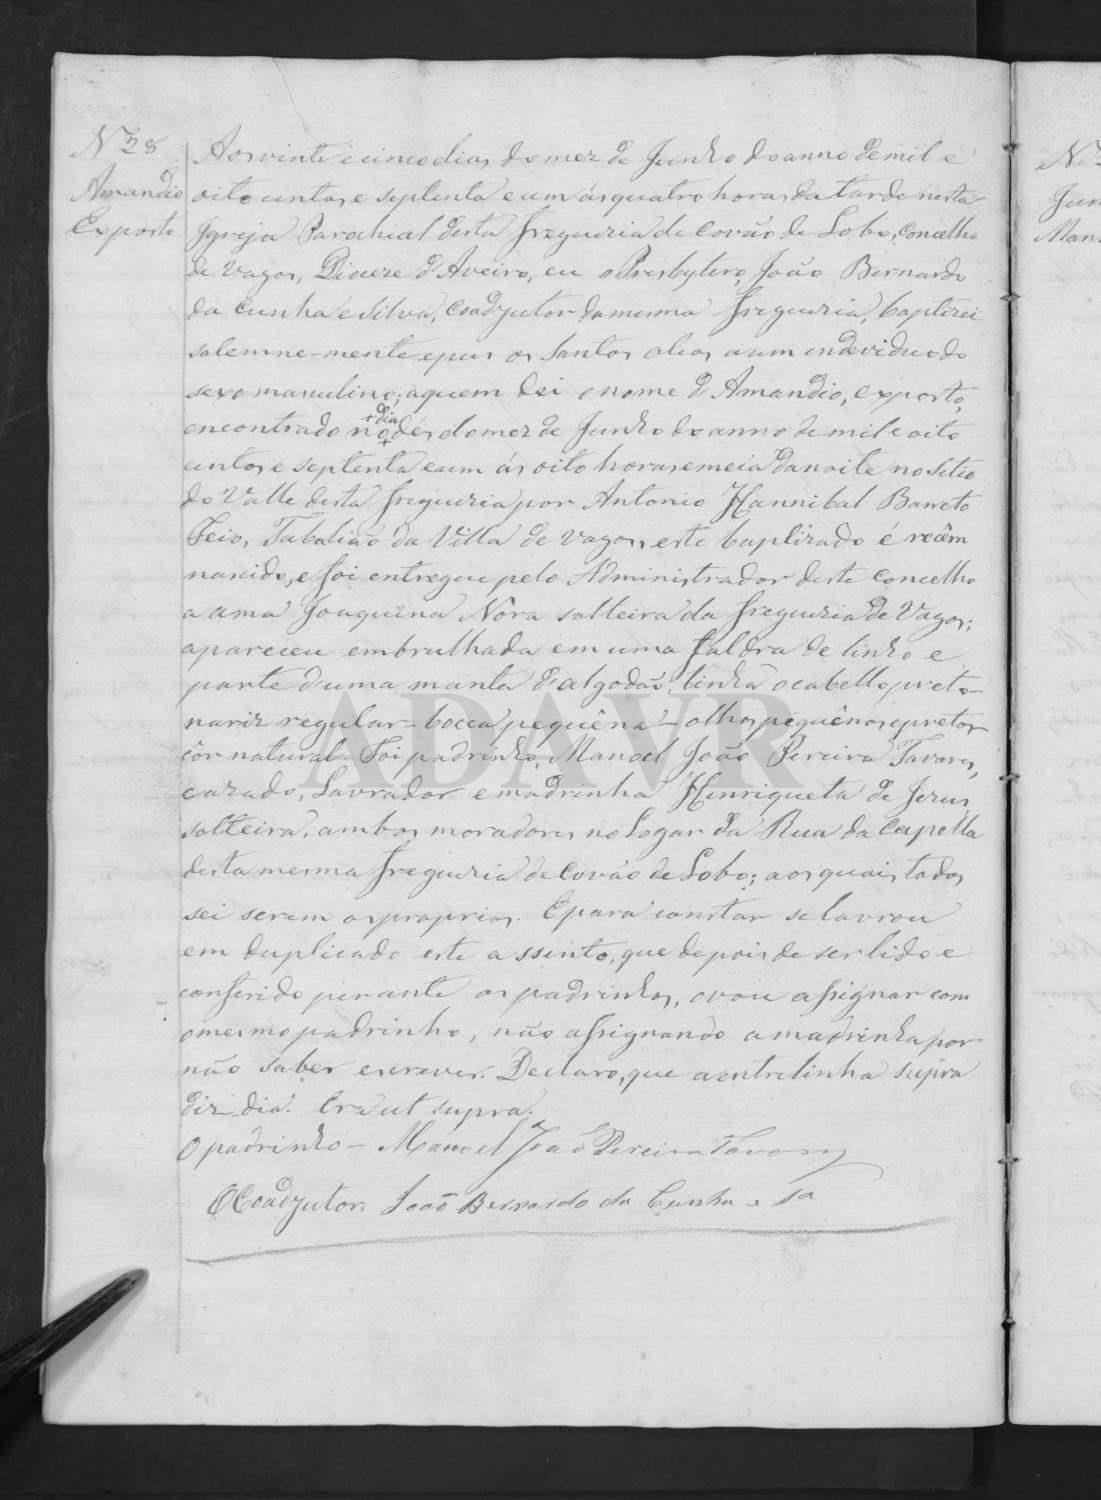 Nº 28
Amandio
Exposto
Aos vinte e cinco dias do mez de Junho do anno de mil e
oito centos e septenta e um ás quatro horas da tarde nesta
Igreja Parochial desta freguezia de Covão de Lobo, Concelho
de Vagos, Diocese d'Aveiro, eu o Presbytero, João Bernardo
da Cunha e Silva, Coadjutor da mesma freguezia, baptizei
solemne-mente e pus os Santos oleos a um individuo do
sexo masculino; a quem dei o nome d'Amandio, exposto,
dia
encontrado no dés do mez de Junho do anno de mil e oito
centos e septenta e um ás oito horas e meia da noite no sitio
do Valle desta freguezia por Antonio Hannibal Barreto
Feio, Tabalião da Villa de Vagos, este baptizado é recêm
nascido, e foi entregue pelo Administrador deste Concelho
a ama Joaquina Nóra solteira da freguezia de Vagos;
apareceu embrulhada em uma faldra de linho e
parte d'uma manta d'algodão, tinha o cabello preto-
nariz regular - bocca pequêna - olhos piquênos e pretos
côr natural. Foi padrinho, Manoel João Pereira Tavares,
cazado, Lavrador e madrinha Henriqueta de Jezus,
solteira, ambos moradores no Logar da Rua da Capella
desta mesma freguezia de Covão de Lobo; aos quais todos
sei serem os proprios. E para constar se lavrou
em duplicado este assento, que depois de ser lido e
conferido perante os padrinhos, o vou assignar com
o mesmo padrinho, não assignando a madrinha por
não saber escrever. Declaro, que a entrelinha supra
diz dia. Era ut supra.
O padrinho - Manoel João Pereira Tavares
O Coadjutor João Bernardo da Cunha e Sa
Nº
Jun
Man
ADAVR